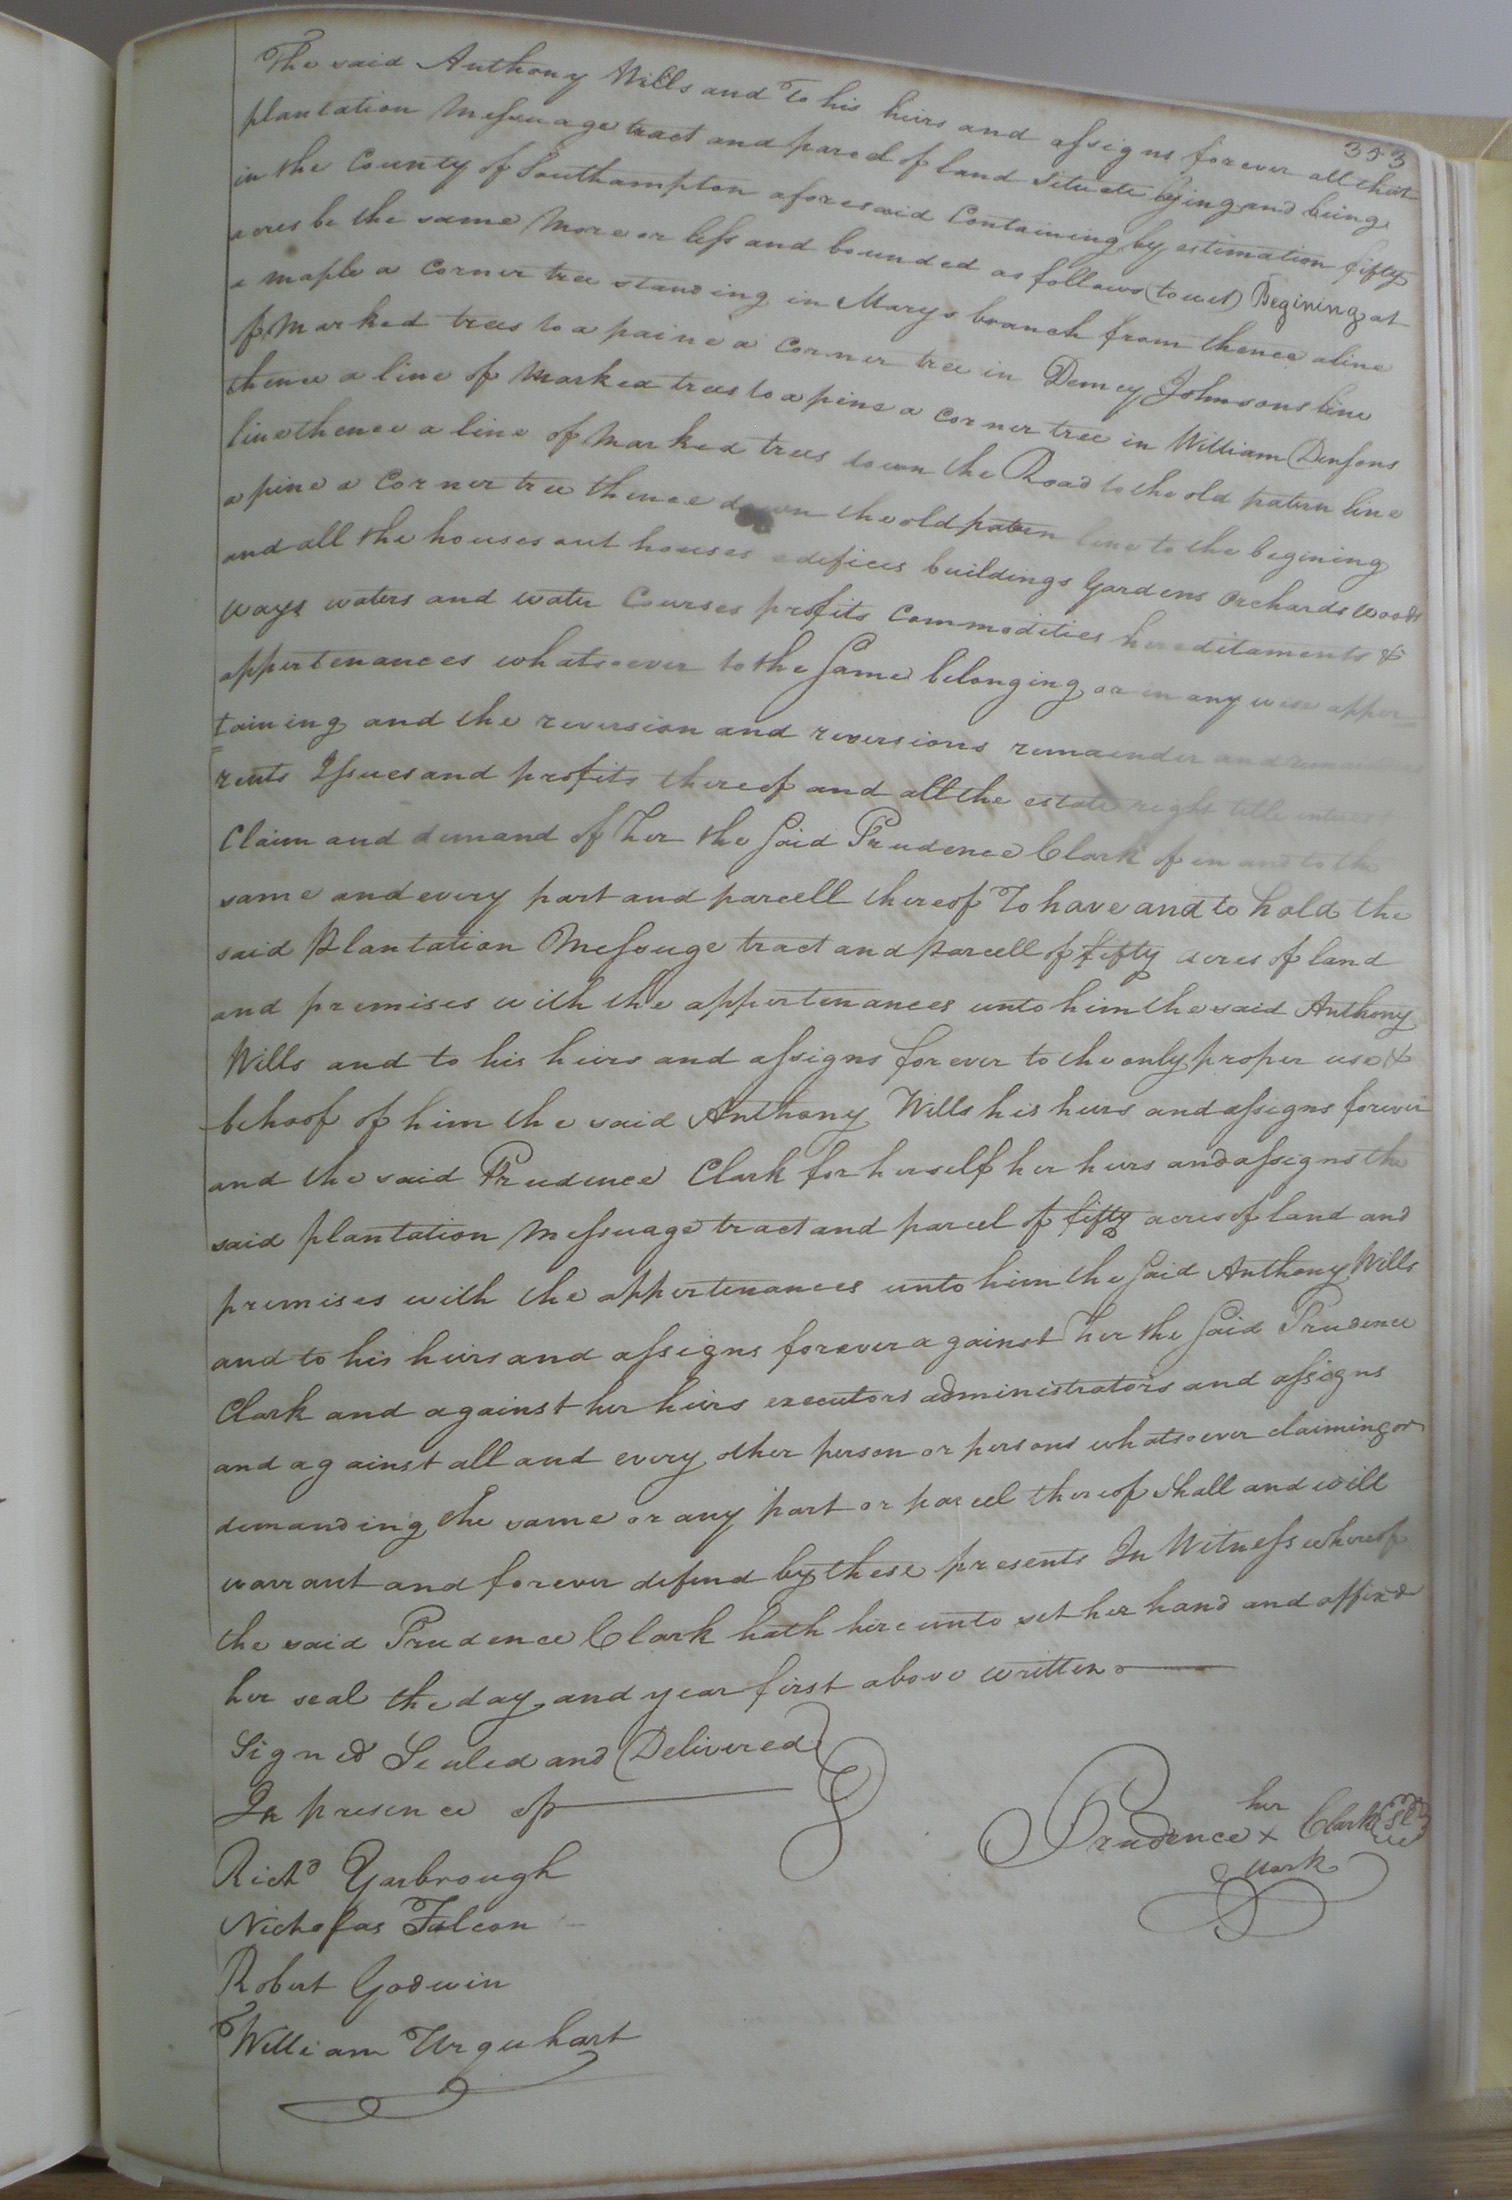 353
The said Anthony Wills and to his heirs and assigns forever all that
plantation Messuage tract and parcel of land Situate lying and being
in the County of Southampton aforesaid Containing by estimation fifty
acres be the same More or less and bounded as follows (to wit) Begining at
a maple a Corner tree standing in Marys branch from thence a line
of Marked trees to a paine a Corner tree in Demcy Johnsons line
thence a line of Marked trees to a pine a Corner tree in William Densons
line thence a line of Marked trees down the Road to the old patern line
a pine a Corner tree thence down the old patern line to the begining
and all the houses out houses edifices buildings Gardens Orchards woods
ways waters and water Courses profits Commodities hereditaments &
appertenances whatsoever to the Same belonging or in any wise apper=
=taining and the reversion and reversions remainder and remainders
rents Issues and profits thereof and all the estate right title interest
Claim and demand of her the Said Prudence Clark of in and to the
same and every part and parcell thereof To have and to hold the
said Plantation Messouge tract and parcell of fifty acres of land
and premises with the appertenances unto him the said Anthony
Wills and to his heirs and assigns forever to the only proper use &
behoof of him the said Anthony Wills his heirs and assigns forever
and the said Prudence Clark for herself her heirs and assigns the
said plantation Messuage tract and parcel of fifty acres of land and
premises with the appertenances unto him the Said Anthony Wills
and to his heirs and assigns forever against her the Said Prudence
Clark and against her heirs executors administrators and assigns
and against all and every other person or persons whatsoever claiming or
demanding the same or any part or parcel thereof Shall and will
warrant and forever defend by these presents In Witness whereof
the said Prudence Clark hath hereunto set her hand and affixd
her seal the day and year first above written
Signed Sealed and Delivered
In presence of
her
Prudence x Clark
mark
Richd Yarbrough
Nicholas Falcon
Robert Godwin
William Urquhart